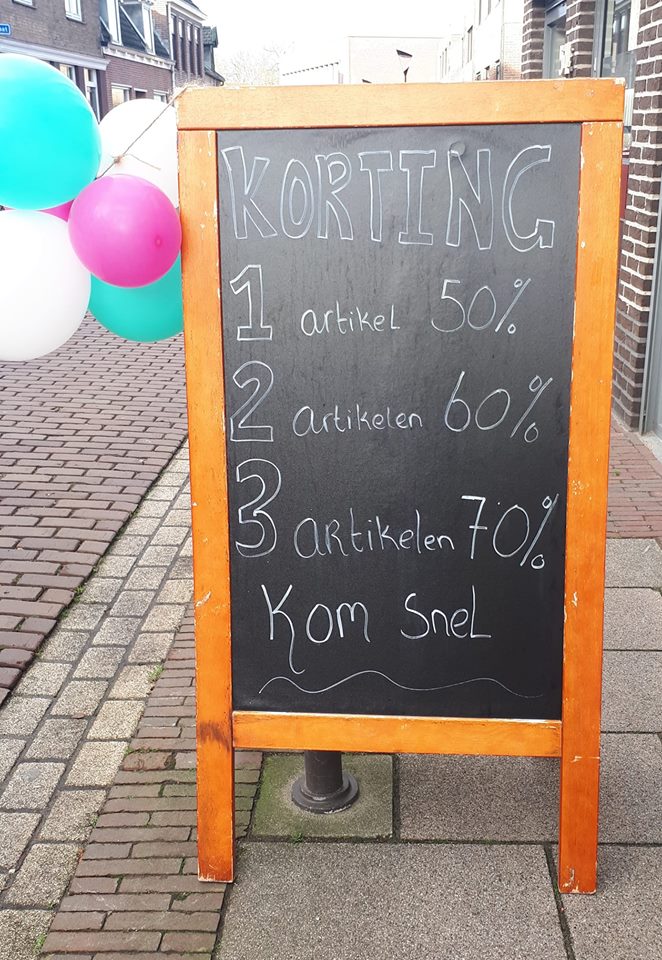 KORTING
1 artikel 50%
2 artikelen 60%
3 artikelen 70%
Kom Snel